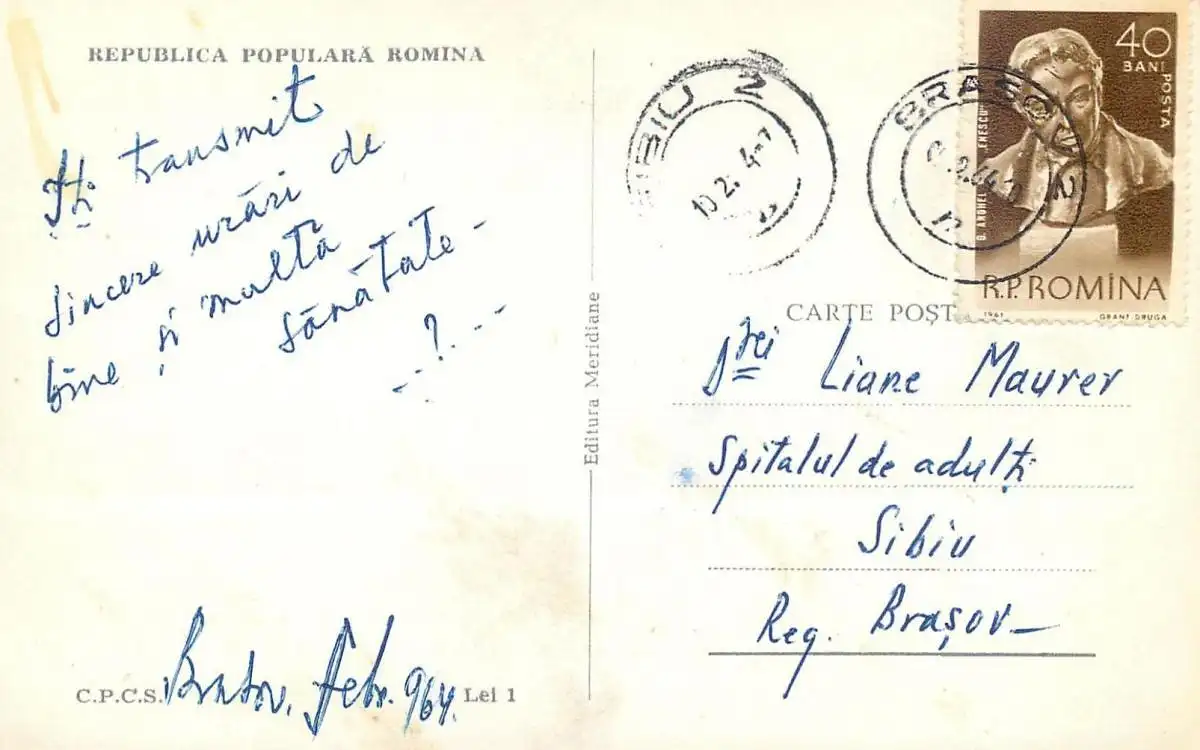 REPUBLICA POPULARĂ ROMINA
Îți transmit
sincere urări de
bine și multă
sănătate -
--?.--
Brașov, febr. 964.
C.P.C.S. Lei 1
Editura Meridiane
SIBIU 2
BRAȘOV 2
40
BANI
POSTA
R.P.ROMÎNA
1961
CARTE POȘT
Drei Liane Maurer
Spitalul de adulți
Sibiu
Reg. Brașov -